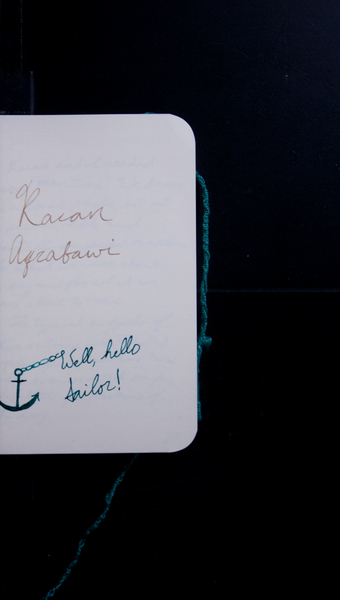 Karan
Agrabawi
Well, hello
Sailor!